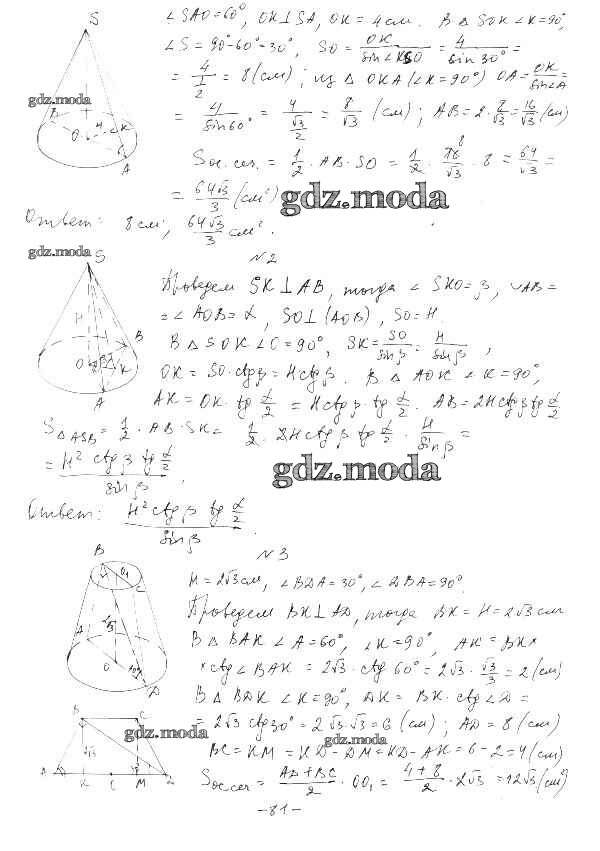 ∠SAO=60°, OK⊥SA, OK = 4 см. В △ SOK ∠K=90°,
∠S = 90°-60°=30°, SO = OK/sin∠KSO = 4/sin30° =
= 4/(1/2) = 8 (см); из △ OKA (∠K=90°) OA = OK/sin∠A =
= 4/sin60° = 4/(√3/2) = 8/√3 (см); AB = 2·8/√3 = 16/√3 (см)
Sос.сеч. = 1/2 · AB · SO = 1/2 · 16/√3 · 8 = 64/√3 =
= 64√3/3 (см²)
Ответ: 8 см; 64√3/3 см².
gdz.moda
gdz.moda
gdz.moda
N2
Проведем SK⊥AB, тогда ∠SKO=β, ∪AB=
= ∠AOB = α, SO⊥(AOB), SO = H.
В △ SOK ∠O = 90°, SK = SO/sinβ = H/sinβ,
OK = SO·ctgβ = Hctgβ. В △ AOK ∠K = 90°,
AK = OK·tg α/2 = Hctgβ·tg α/2. AB = 2Hctgβ tg α/2
S△ASB = 1/2 · AB · SK = 1/2 · 2Hctgβ tg α/2 · H/sinβ =
= H² ctgβ tg α/2 / sinβ.
gdz.moda
Ответ: H² ctgβ tg α/2 / sinβ.
N3
H = 2√3 см, ∠BDA = 30°, ∠DBA = 90°.
Проведем BK⊥AD, тогда BK = H = 2√3 см
В △ BAK ∠A = 60°, ∠K = 90°, AK = BK×
×ctg∠BAK = 2√3 · ctg 60° = 2√3 · √3/3 = 2 (см)
В △ BDK ∠K = 90°, DK = BK·ctg∠D =
= 2√3 ctg30° = 2√3·√3 = 6 (см); AD = 8 (см)
BC = KM = KD - DM = KD - AK = 6 - 2 = 4 (см)
Sос.сеч = (AD+BC)/2 · OO₁ = (4+8)/2 · 2√3 = 12√3 (см²)
gdz.moda
gdz.moda
-81-